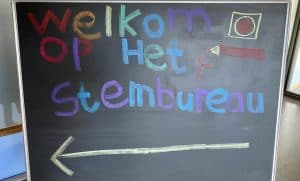 Welkom
op Het
Stembureau